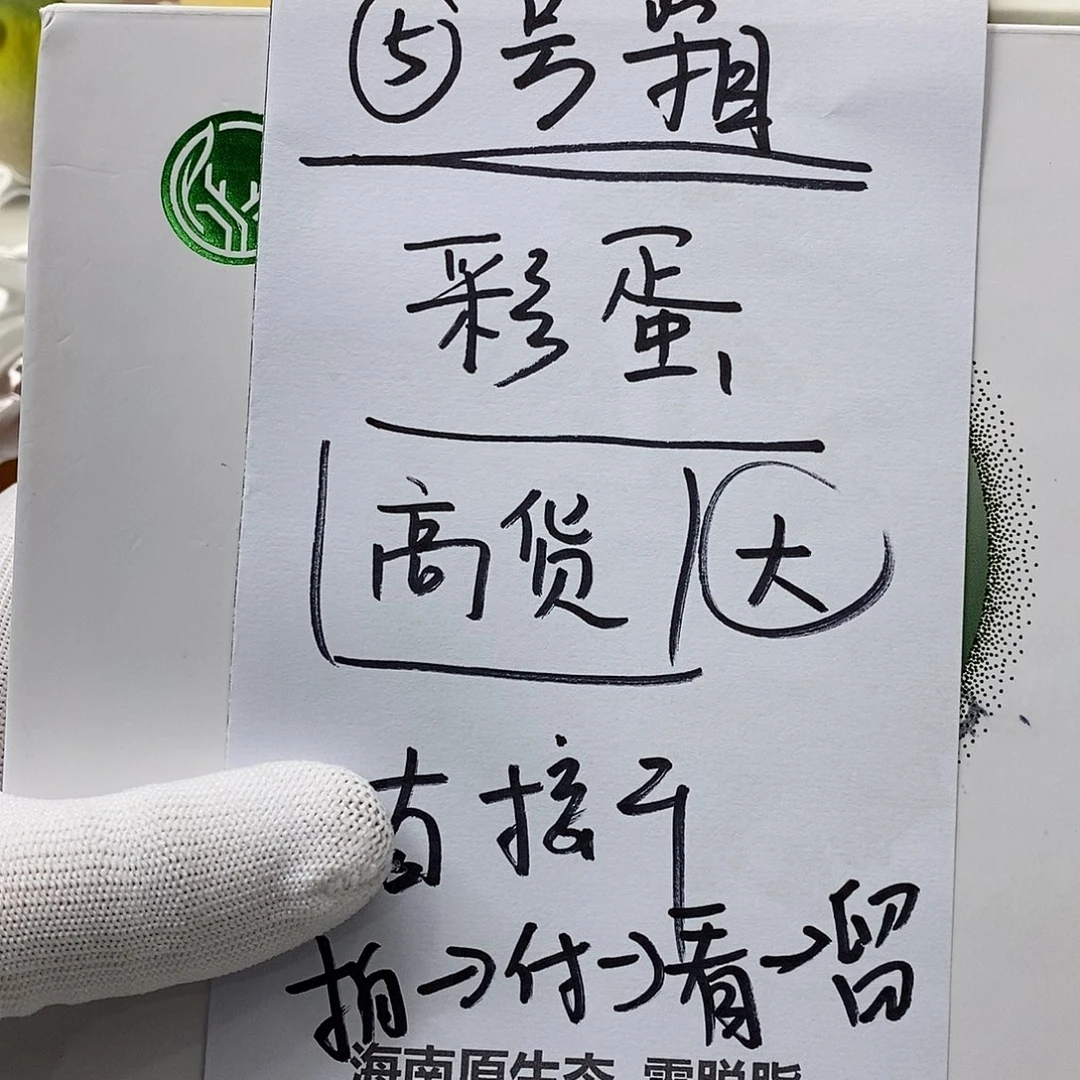 ⑤号箱
彩蛋
高货 大
直接干
拍→付→看→留
海南原生态 零脱脂